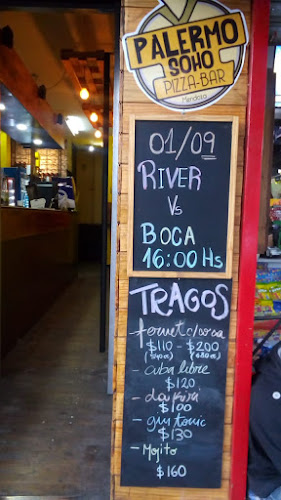 PALERMO
SOHO
PIZZA-BAR
Mendoza
01/09
RIVER
Vs
BOCA
16:00 Hs
TRAGOS
- fernet c/coca
$110 - $200
- cuba libre
$120
- daikiri
$100
- gin tonic
$130
- Mojito
$160